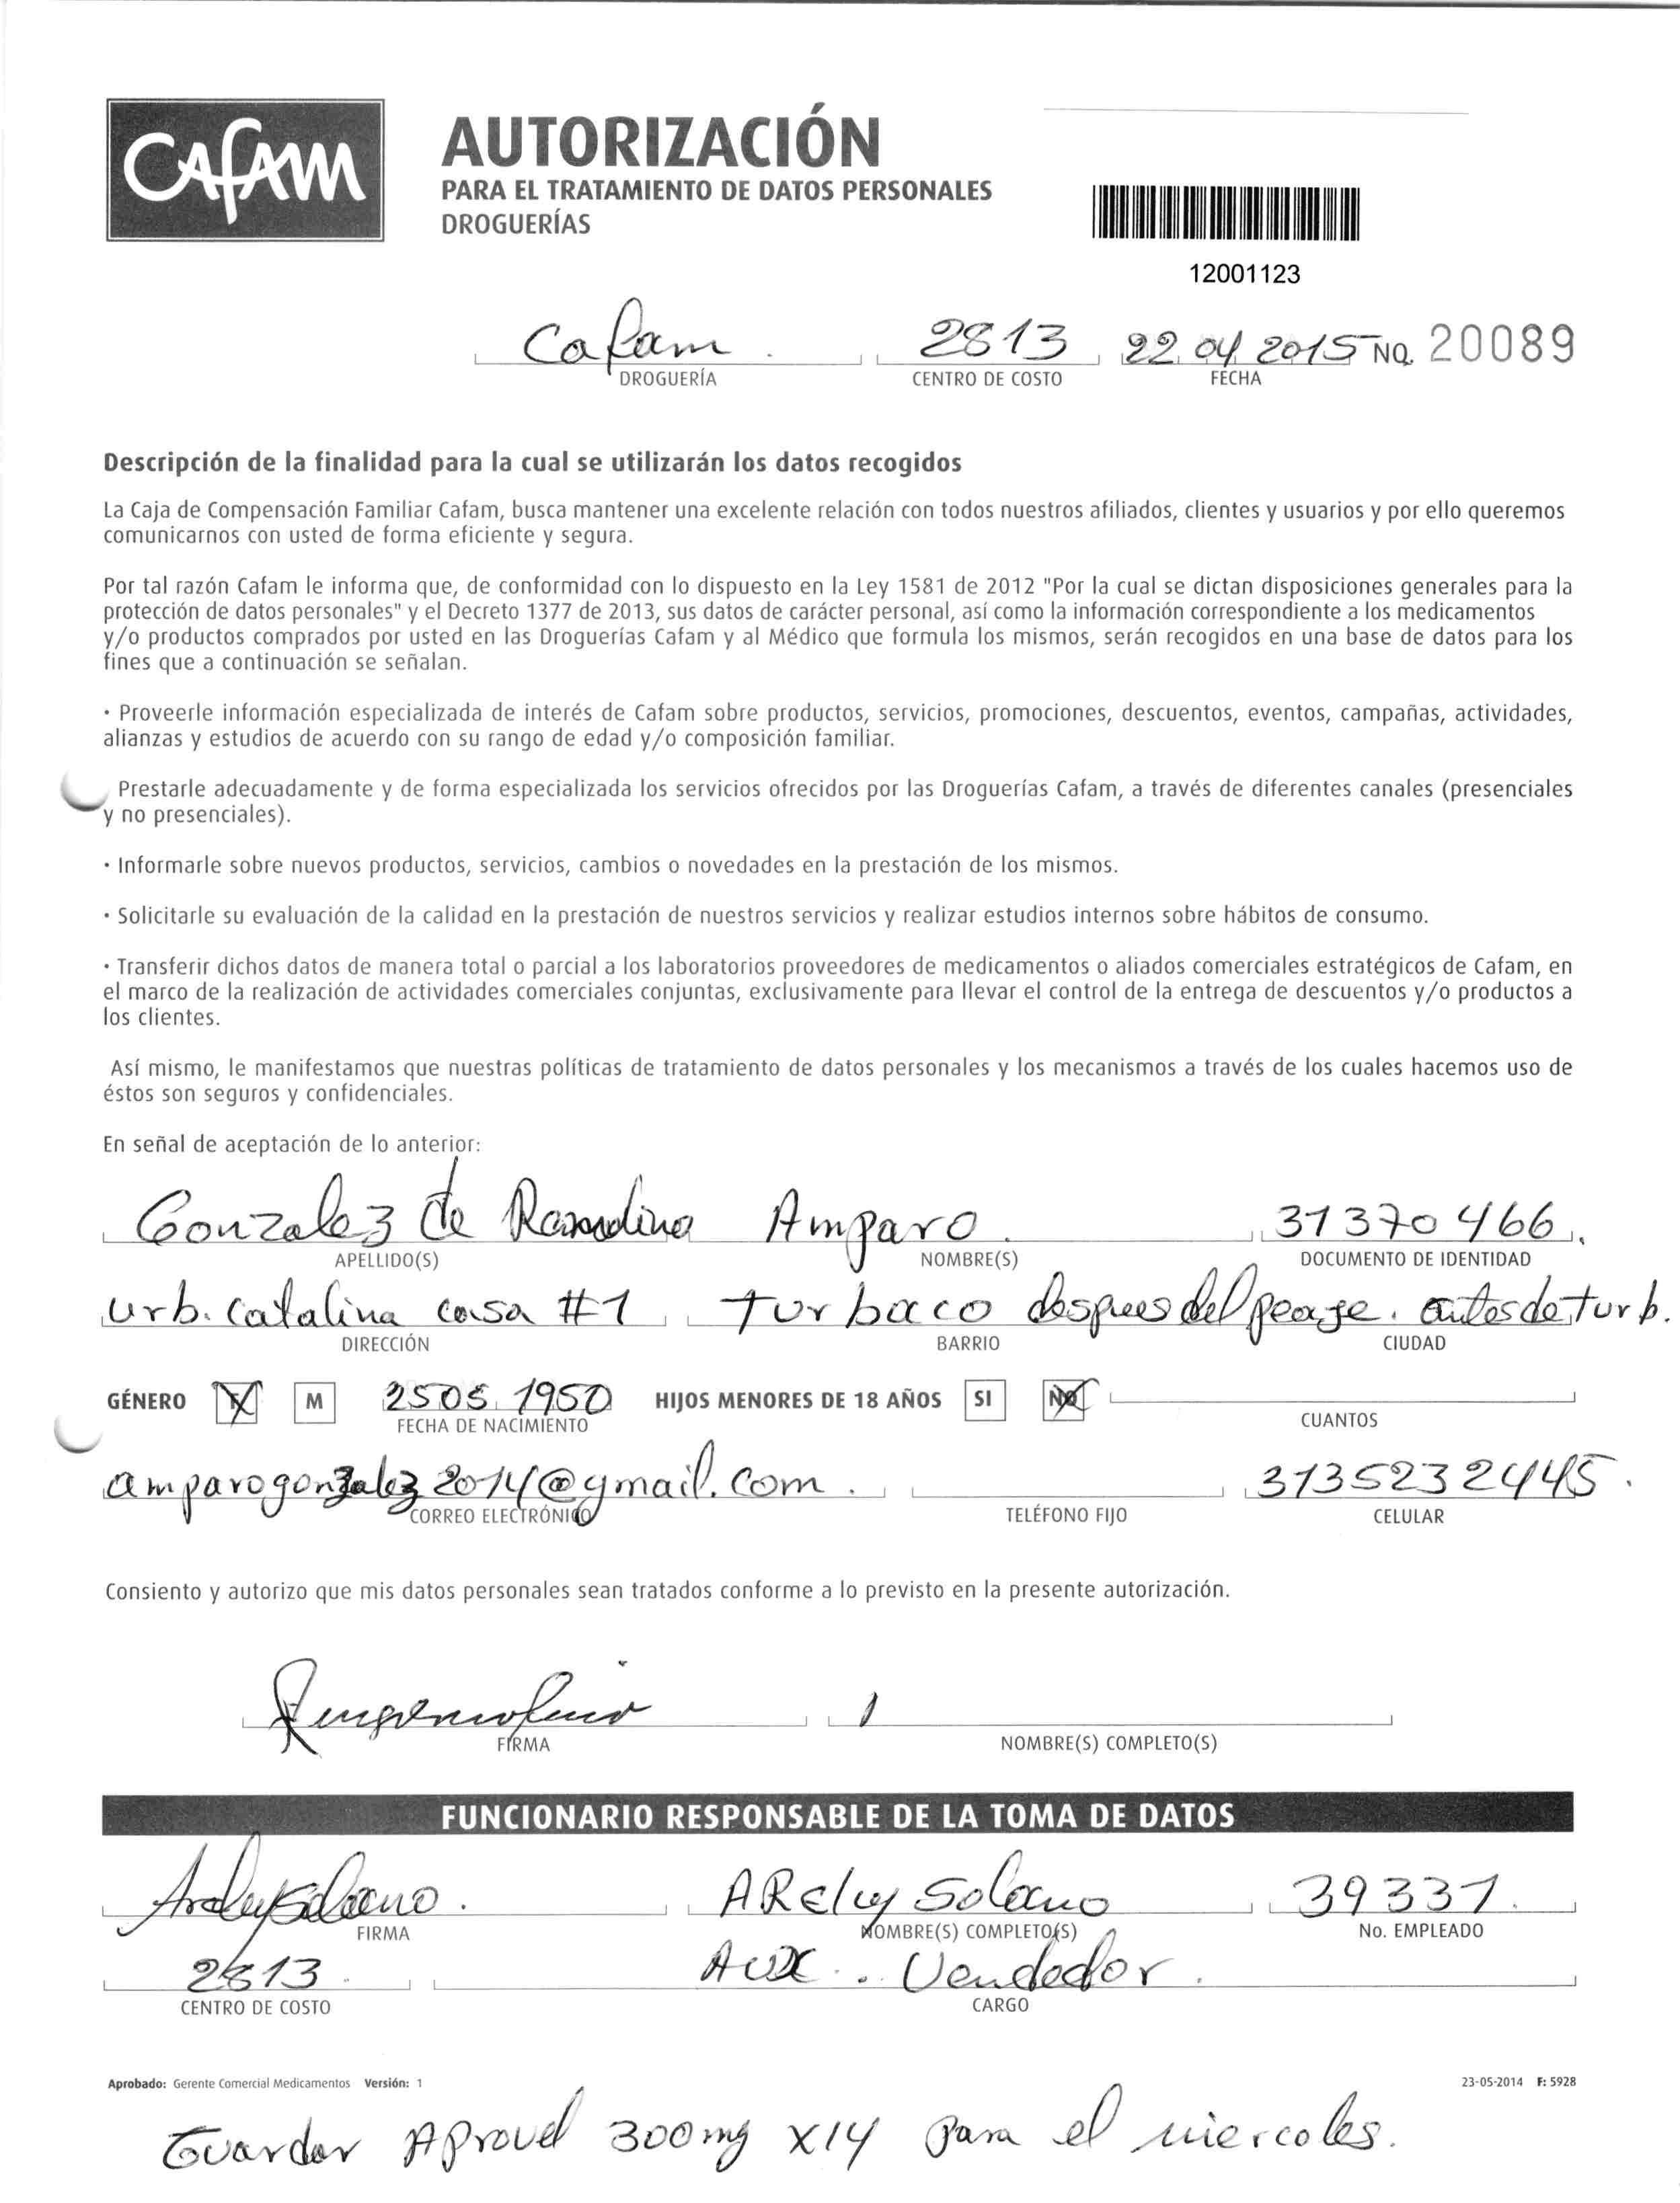 CAFAM
AUTORIZACIÓN
PARA EL TRATAMIENTO DE DATOS PERSONALES
DROGUERÍAS
12001123
Cafam 2813 22 04 2015 No. 20089
DROGUERÍA CENTRO DE COSTO FECHA
Descripción de la finalidad para la cual se utilizarán los datos recogidos
La Caja de Compensación Familiar Cafam, busca mantener una excelente relación con todos nuestros afiliados, clientes y usuarios y por ello queremos
comunicarnos con usted de forma eficiente y segura.
Por tal razón Cafam le informa que, de conformidad con lo dispuesto en la Ley 1581 de 2012 "Por la cual se dictan disposiciones generales para la
protección de datos personales" y el Decreto 1377 de 2013, sus datos de carácter personal, así como la información correspondiente a los medicamentos
y/o productos comprados por usted en las Droguerías Cafam y al Médico que formula los mismos, serán recogidos en una base de datos para los
fines que a continuación se señalan.
· Proveerle información especializada de interés de Cafam sobre productos, servicios, promociones, descuentos, eventos, campañas, actividades,
alianzas y estudios de acuerdo con su rango de edad y/o composición familiar.
Prestarle adecuadamente y de forma especializada los servicios ofrecidos por las Droguerías Cafam, a través de diferentes canales (presenciales
y no presenciales).
· Informarle sobre nuevos productos, servicios, cambios o novedades en la prestación de los mismos.
· Solicitarle su evaluación de la calidad en la prestación de nuestros servicios y realizar estudios internos sobre hábitos de consumo.
· Transferir dichos datos de manera total o parcial a los laboratorios proveedores de medicamentos o aliados comerciales estratégicos de Cafam, en
el marco de la realización de actividades comerciales conjuntas, exclusivamente para llevar el control de la entrega de descuentos y/o productos a
los clientes.
Así mismo, le manifestamos que nuestras políticas de tratamiento de datos personales y los mecanismos a través de los cuales hacemos uso de
éstos son seguros y confidenciales.
En señal de aceptación de lo anterior:
Gonzalez de Amparo 31370466
APELLIDO(S) NOMBRE(S) DOCUMENTO DE IDENTIDAD
urb. Catalina casa #1 Turbaco despues del peaje. antes de turb.
DIRECCIÓN BARRIO CIUDAD
GÉNERO F M 25 05 1950 HIJOS MENORES DE 18 AÑOS SI NO
FECHA DE NACIMIENTO CUANTOS
amparogonzalez2014@gmail.com. 3135232445.
CORREO ELECTRÓNICO TELÉFONO FIJO CELULAR
Consiento y autorizo que mis datos personales sean tratados conforme a lo previsto en la presente autorización.
FIRMA NOMBRE(S) COMPLETO(S)
FUNCIONARIO RESPONSABLE DE LA TOMA DE DATOS
Arelysolano. ARely Solano 39331.
FIRMA NOMBRE(S) COMPLETO(S) No. EMPLEADO
2813 AUX. Vendedor.
CENTRO DE COSTO CARGO
Aprobado: Gerente Comercial Medicamentos Versión: 1 23-05-2014 F: 5928
Guardar Aprovel 300mg x14 para el miercoles.